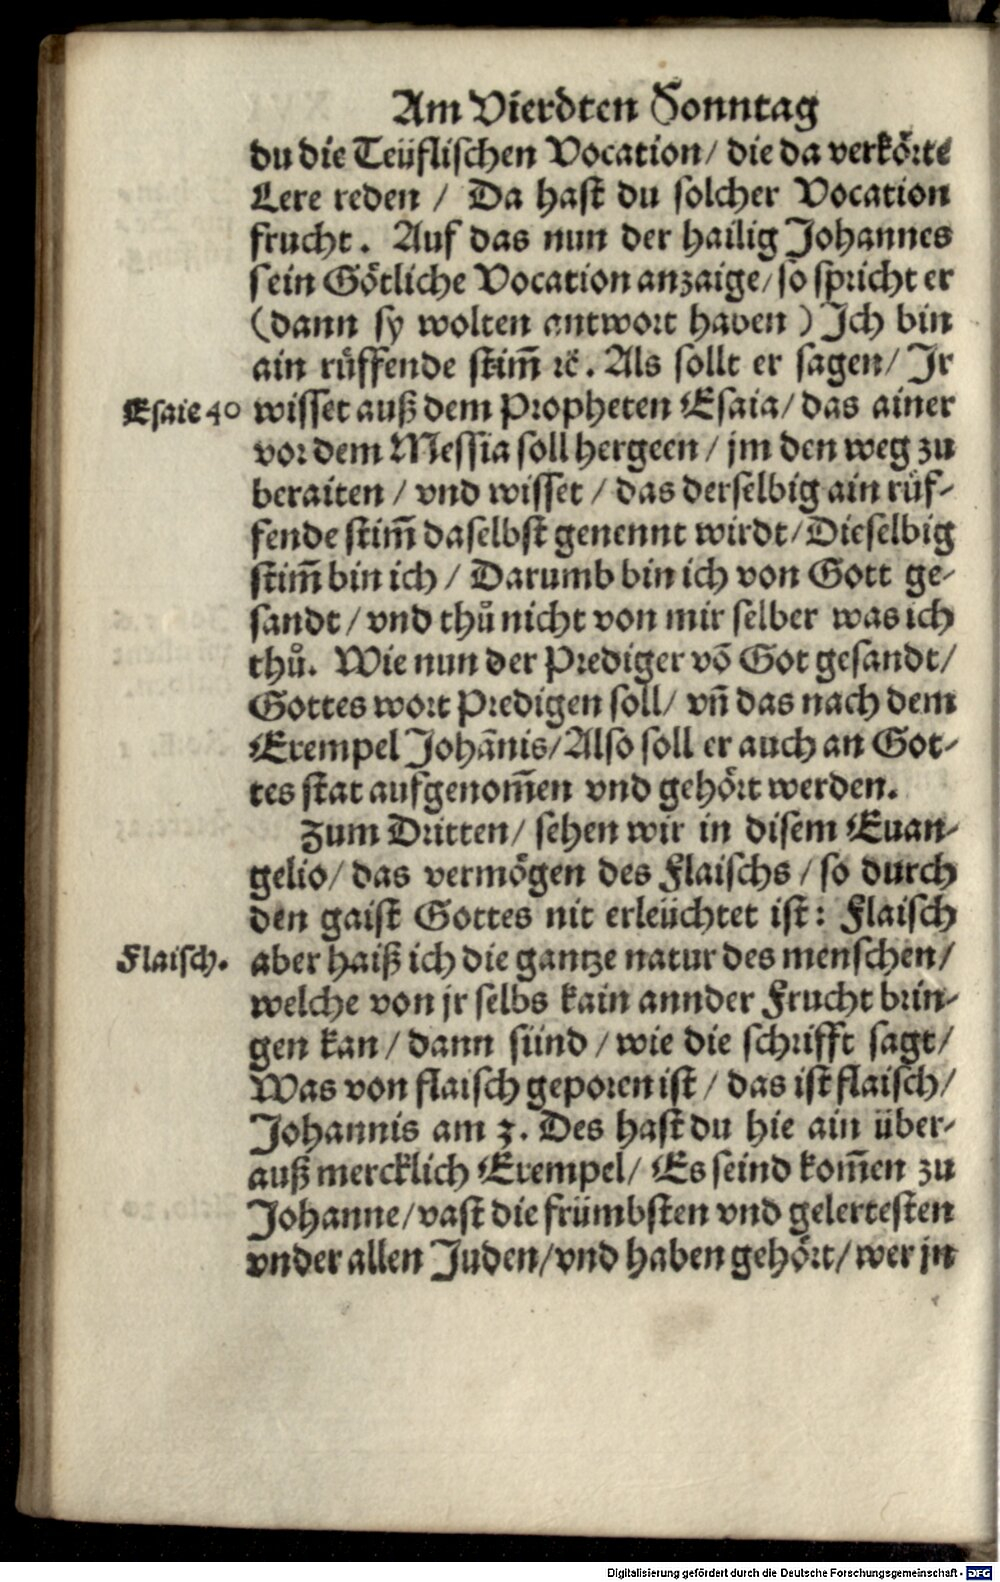 Am Vierdten Sonntag
du die Teüflischen Vocation/ die da verkörte
Lere reden / Da hast du solcher Vocation
frucht. Auf das nun der hailig Johannes
sein Götliche Vocation anzaige/ so spricht er
(dann sy wolten antwort haben ) Ich bin
ain rüffende stim̄ ꝛc̄. Als sollt er sagen/ Ir
Esaie 40 wisset auß dem Propheten Esaia/ das ainer
vor dem Messia soll hergeen / jm den weg zu
beraiten / vnd wisset / das derselbig ain rüf-
fende stim̄ daselbst genennt wirdt/ Dieselbig
stim̄ bin ich / Darumb bin ich von Gott ge-
sandt / vnd thů nicht von mir selber was ich
thů. Wie nun der Prediger vō Got gesandt/
Gottes wort Predigen soll/ vn̄ das nach dem
Exempel Johānis/ Also soll er auch an Got-
tes stat aufgenom̄en vnd gehört werden.
Zum Dritten/ sehen wir in disem Euan-
gelio/ das vermögen des Flaischs / so durch
den gaist Gottes nit erleüchtet ist: Flaisch
Flaisch. aber haiß ich die gantze natur des menschen/
welche von jr selbs kain annder Frucht brin-
gen kan / dann sünd / wie die schrifft sagt/
Was von flaisch geporen ist / das ist flaisch/
Johannis am 3. Des hast du hie ain über-
auß mercklich Exempel/ Es seind kom̄en zu
Johanne/ vast die frümbsten vnd gelertesten
vnder allen Juden/ vnd haben gehört/ wer jn
Digitalisierung gefördert durch die Deutsche Forschungsgemeinschaft - DFG